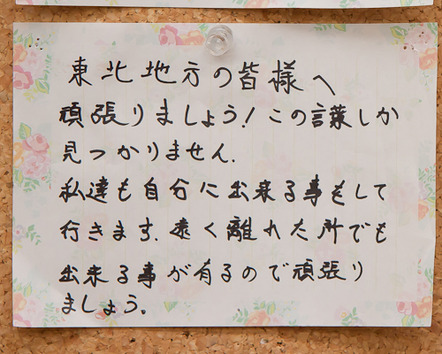 東北地方の皆様へ
頑張りましょう!この言葉しか
見つかりません.
私達も自分に出来る事をして
行きます.遠く離れた所でも
出来る事が有るので頑張り
ましょう.